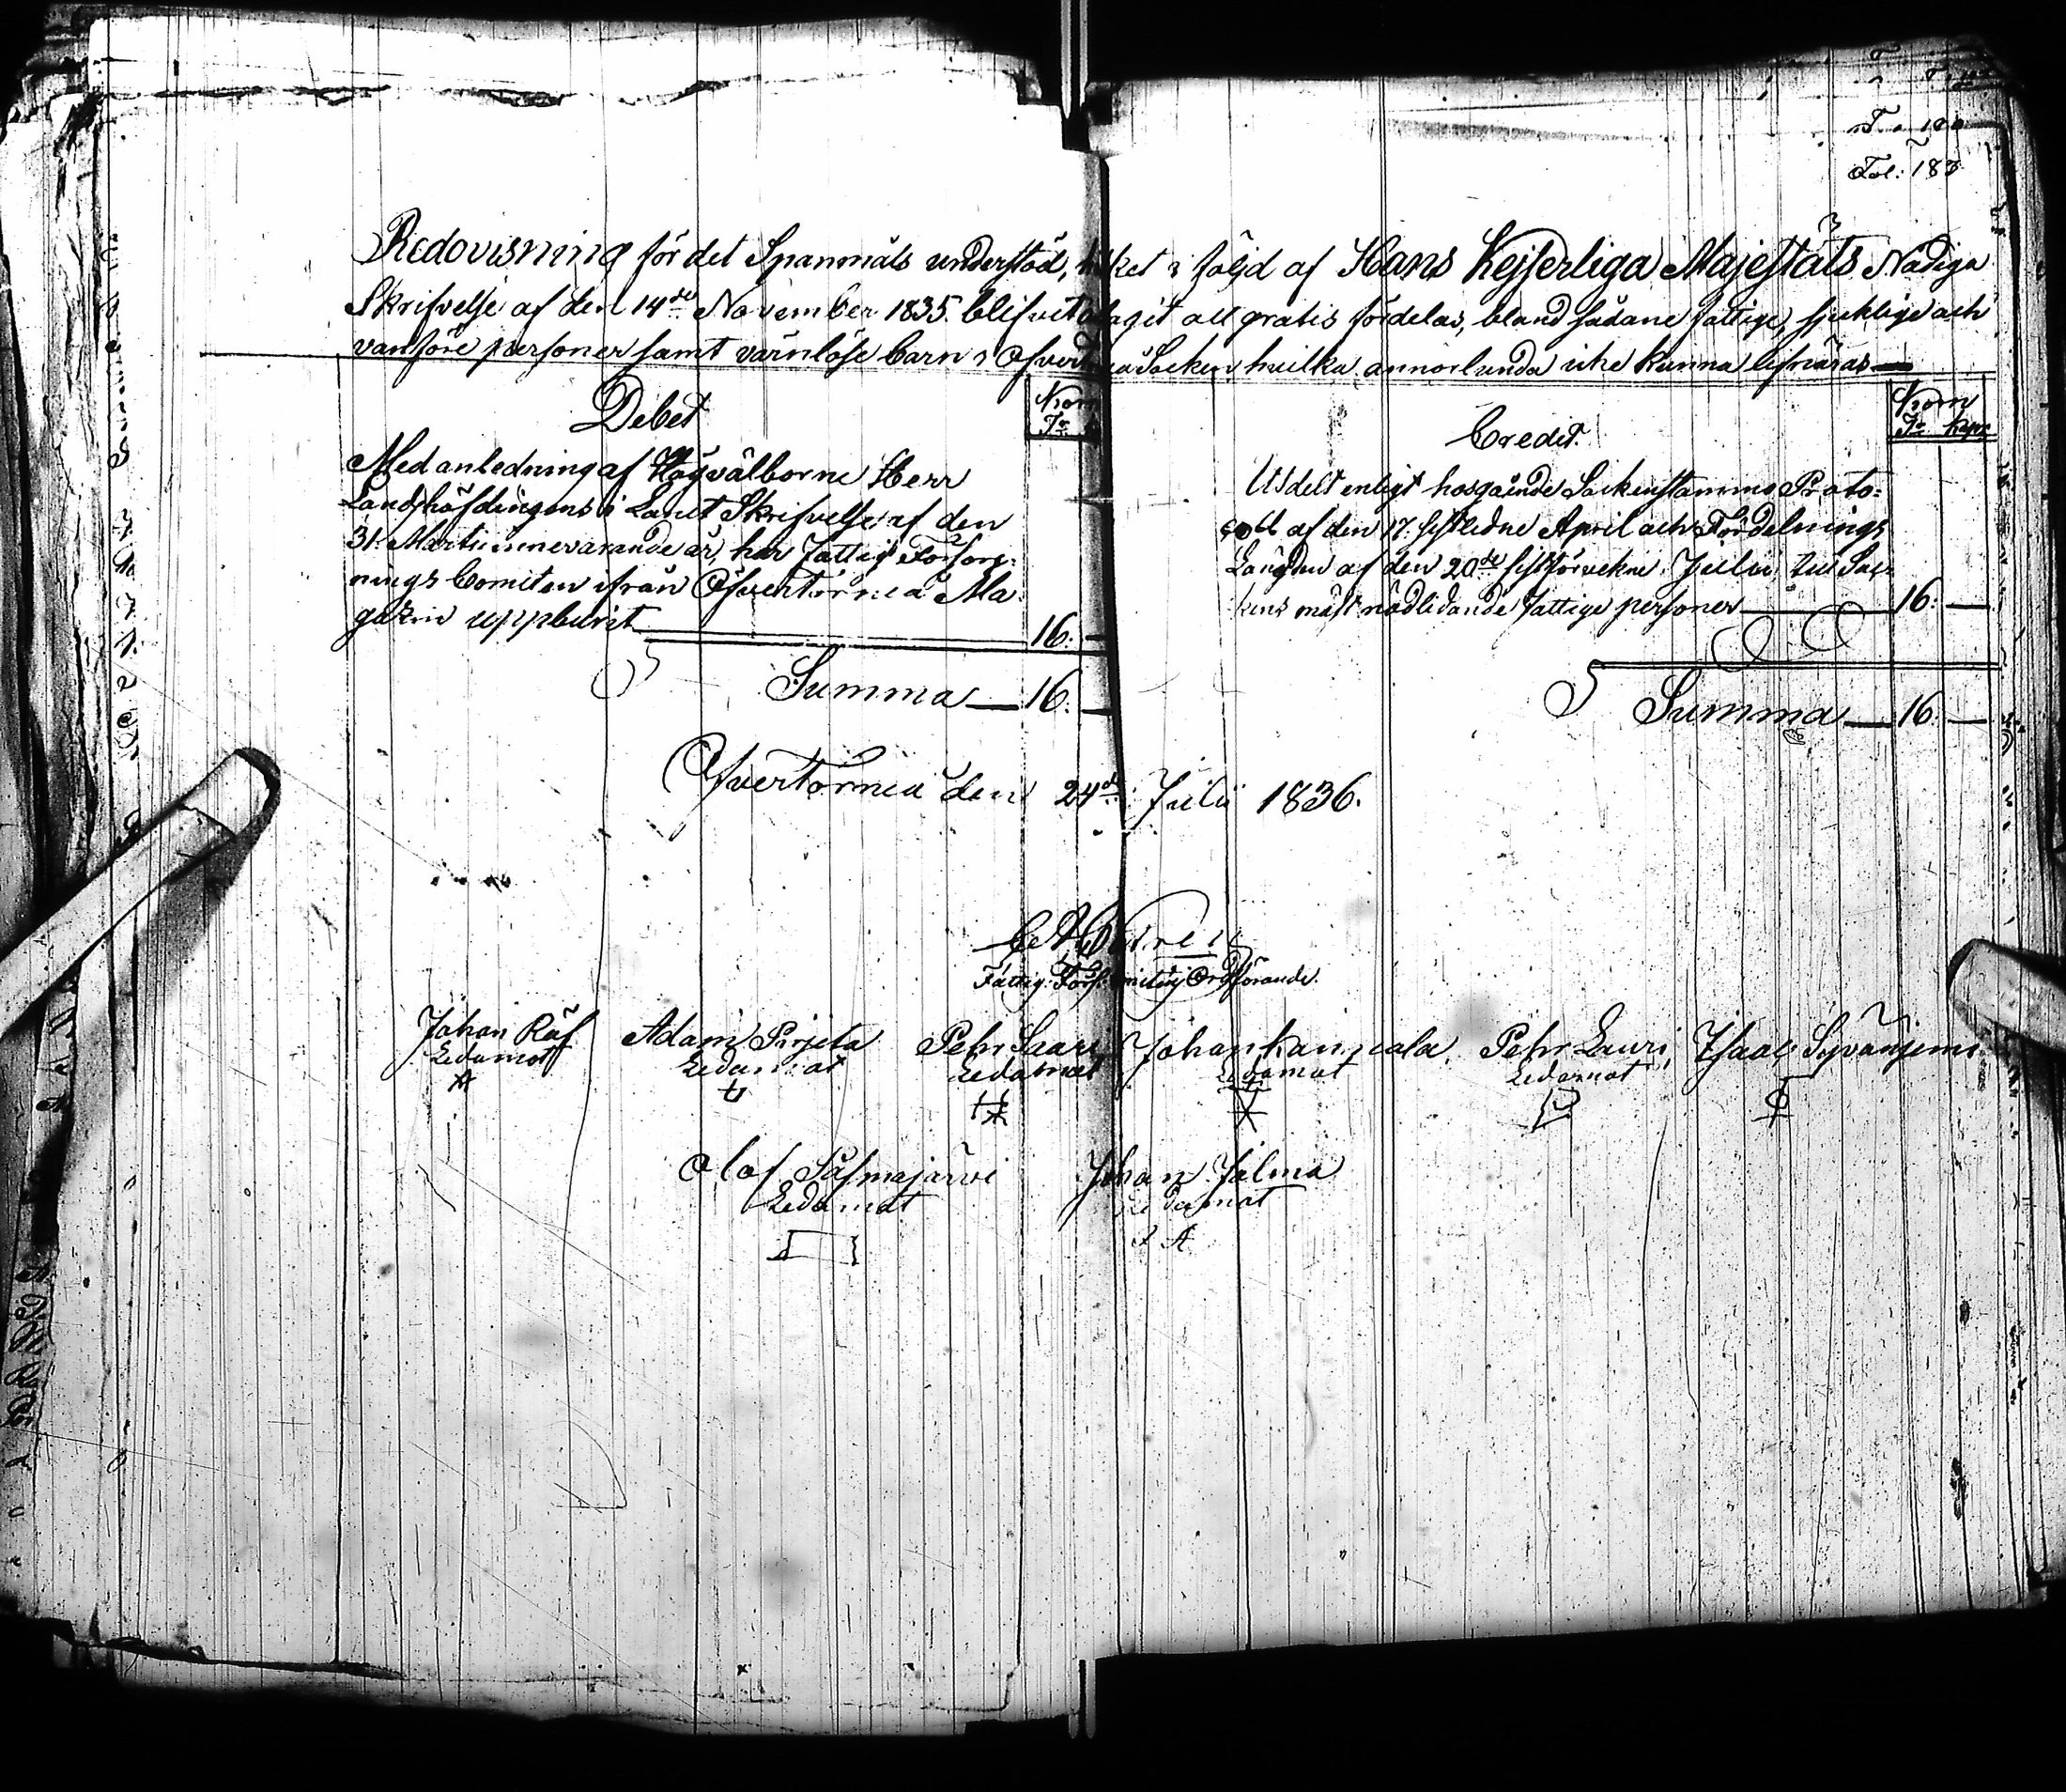 Fol: 183
Redovisning för det Spanmåls understöd, hvilket i följd af Hans Kejserliga Majestäts Nådiga
Skrifvelse af den 14de November 1835. blifvit att gratis fördelas, bland sådane fattige, sjuklige och
vanföre personer samt värnlöse barn i Öfvertorneå Socken hvilka annorlunda icke kunna lifnäras
Debet
Med anledning af Högvälborne Herr
Landshöfdingens i Länet Skrifvelse af den
31 Martii innevarande år, har Fattig Försörj-
nings Comiten ifrån Öfvertorneå Ma-
gazin uppburit 16. —
Summa — 16. —
Credit
Tr Kapr
Utdelt enligt hosgående Sockenstämmo Proto-
coll af den 17. sistledne April och Fördelnings
Längden af den 20de sistförvekne Julii till Soc-
kens mäst nödlidande fattige personer — 16. —
Summa — 16. —
Öfvertorneå den 24de Julii 1836.
Ordförande.
Johan Räf Adam Pirjeta Pehr Saari Johan Pehr Lauri Isaac
Ledamot Ledamot Ledamot Ledamot Ledamot
Olof Johan Jalma
Ledamot Ledamot